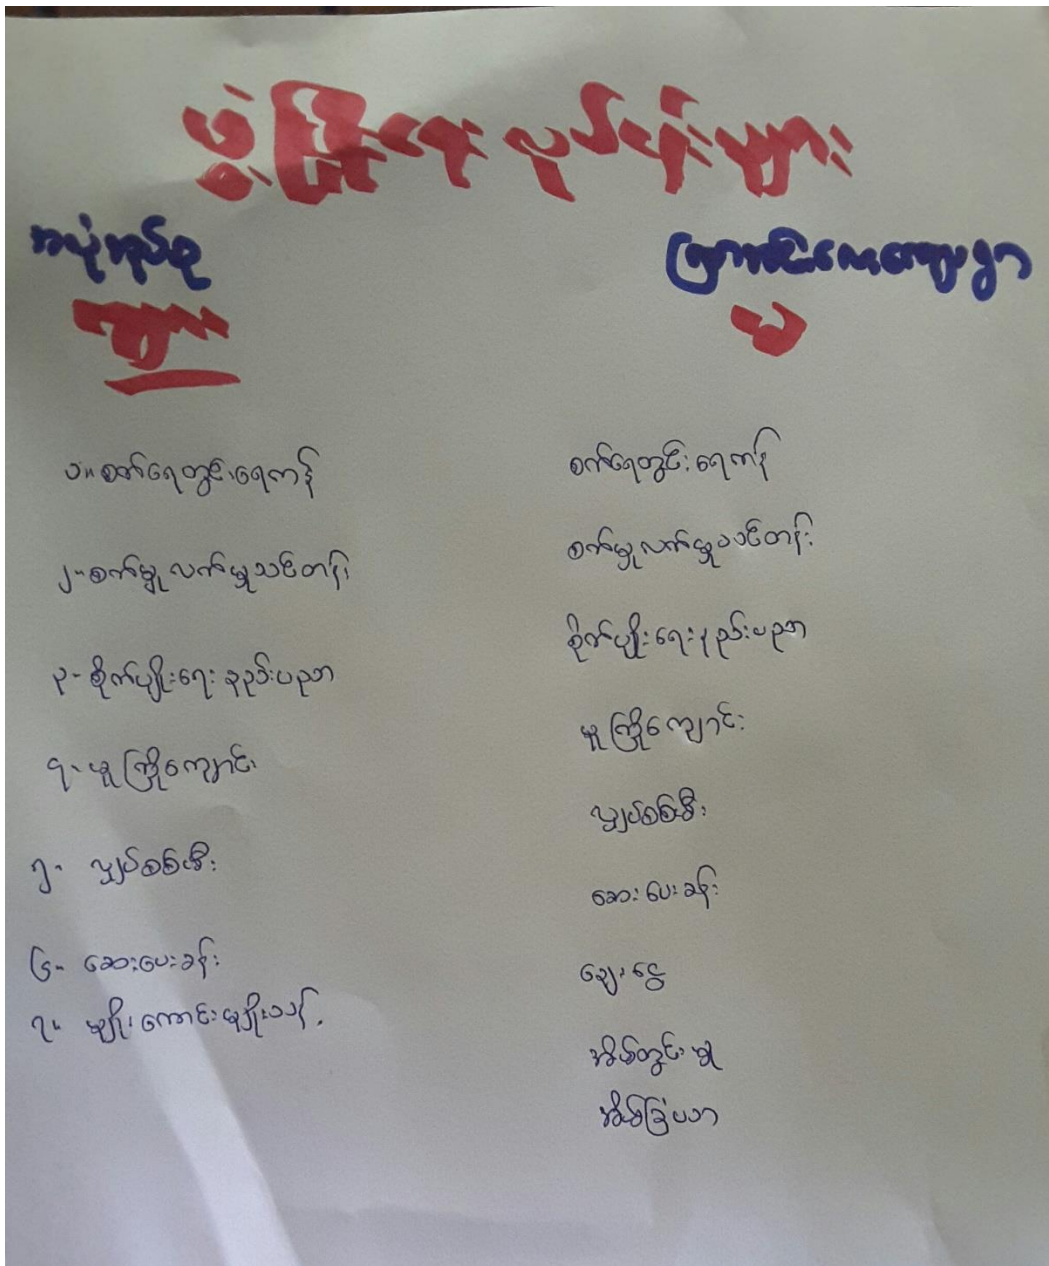 ဖွံ့ဖြိုးရေး လုပ်ငန်းများ
အယုံအုပ်စု
ကျား
ကြောင်လေးကျေးရွာ
မ
၁။ စက်ရေတွင်း၊ ရေကန်
၂- စက်မှု လက်မှုသင်တန်း
၃- စိုက်ပျိုးရေး နည်းပညာ
၄- မူကြိုကျောင်း
၅- လျှပ်စစ်မီး
၆- ဆေးပေးခန်း
၇။ မျိုးကောင်းမျိုးသန့်
စက်ရေတွင်း ရေကန်
စက်မှု လက်မှုသင်တန်း
စိုက်ပျိုးရေး နည်းပညာ
မူကြိုကျောင်း
လျှပ်စစ်မီး
ဆေးပေးခန်း
ချေးငွေ
အိမ်တွင်းမှု
အိမ်ခြံပသာ